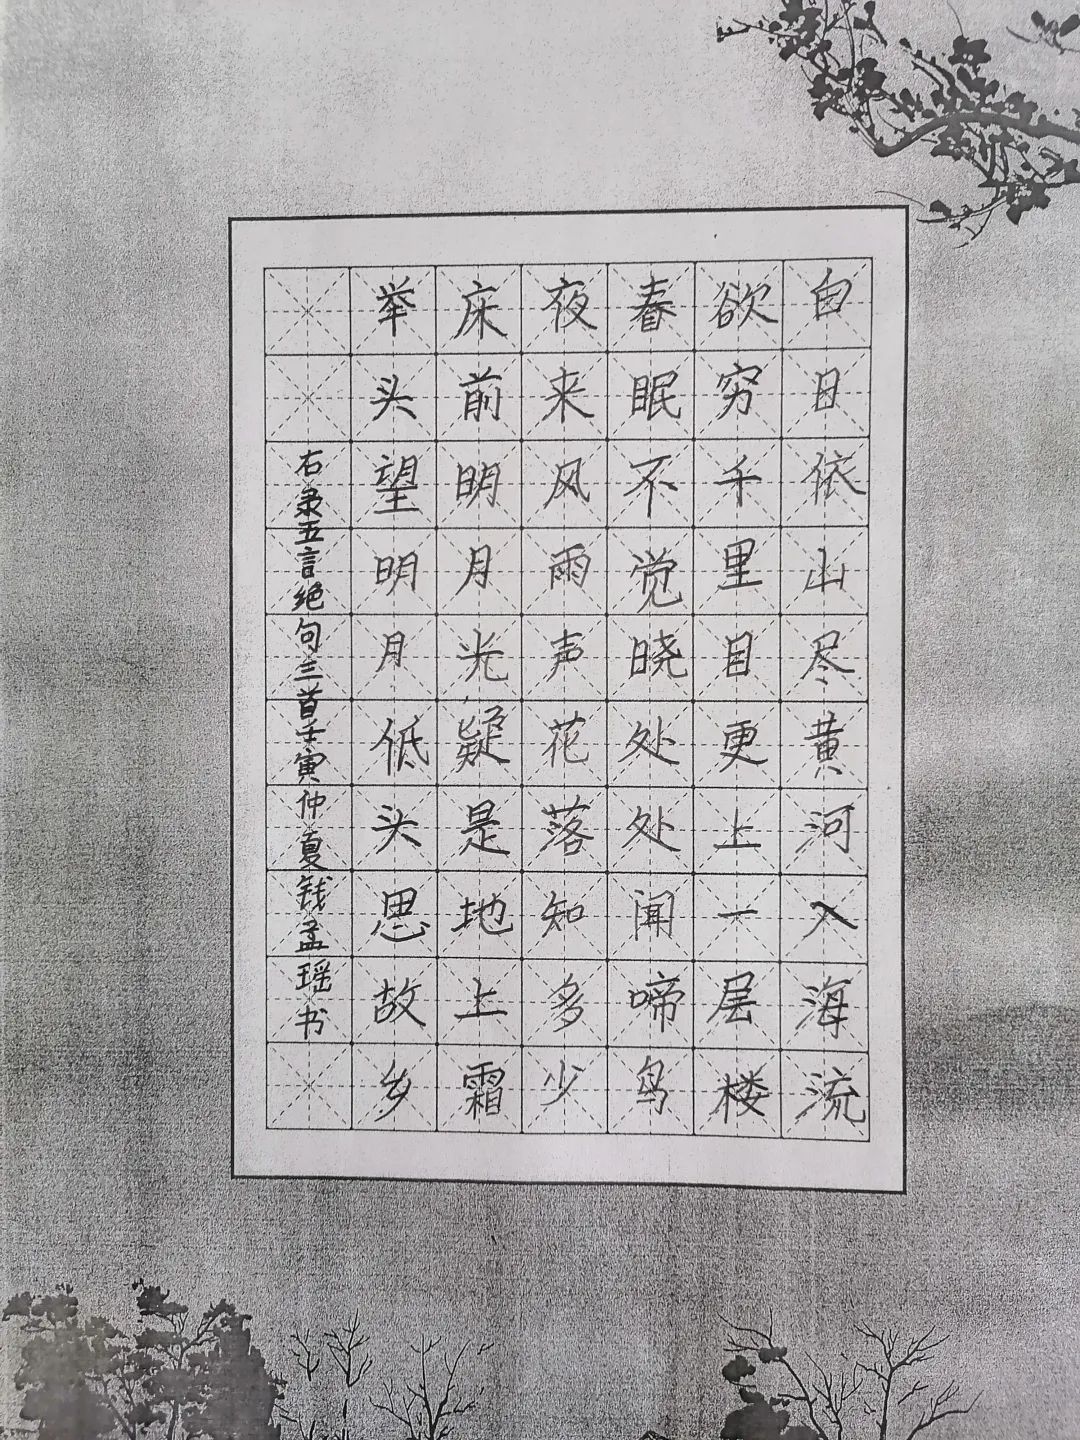 白日依山尽黄河入海流
欲穷千里目更上一层楼
春眠不觉晓处处闻啼鸟
夜来风雨声花落知多少
床前明月光疑是地上霜
举头望明月低头思故乡
右录五言绝句三首壬寅仲夏钱孟瑶书